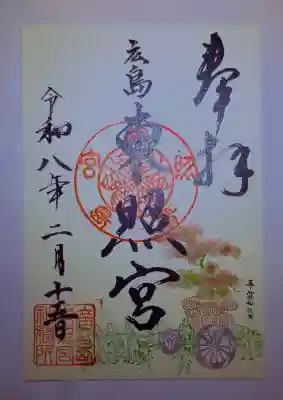 奉拝
広島
東照宮
令和八年二月十五日